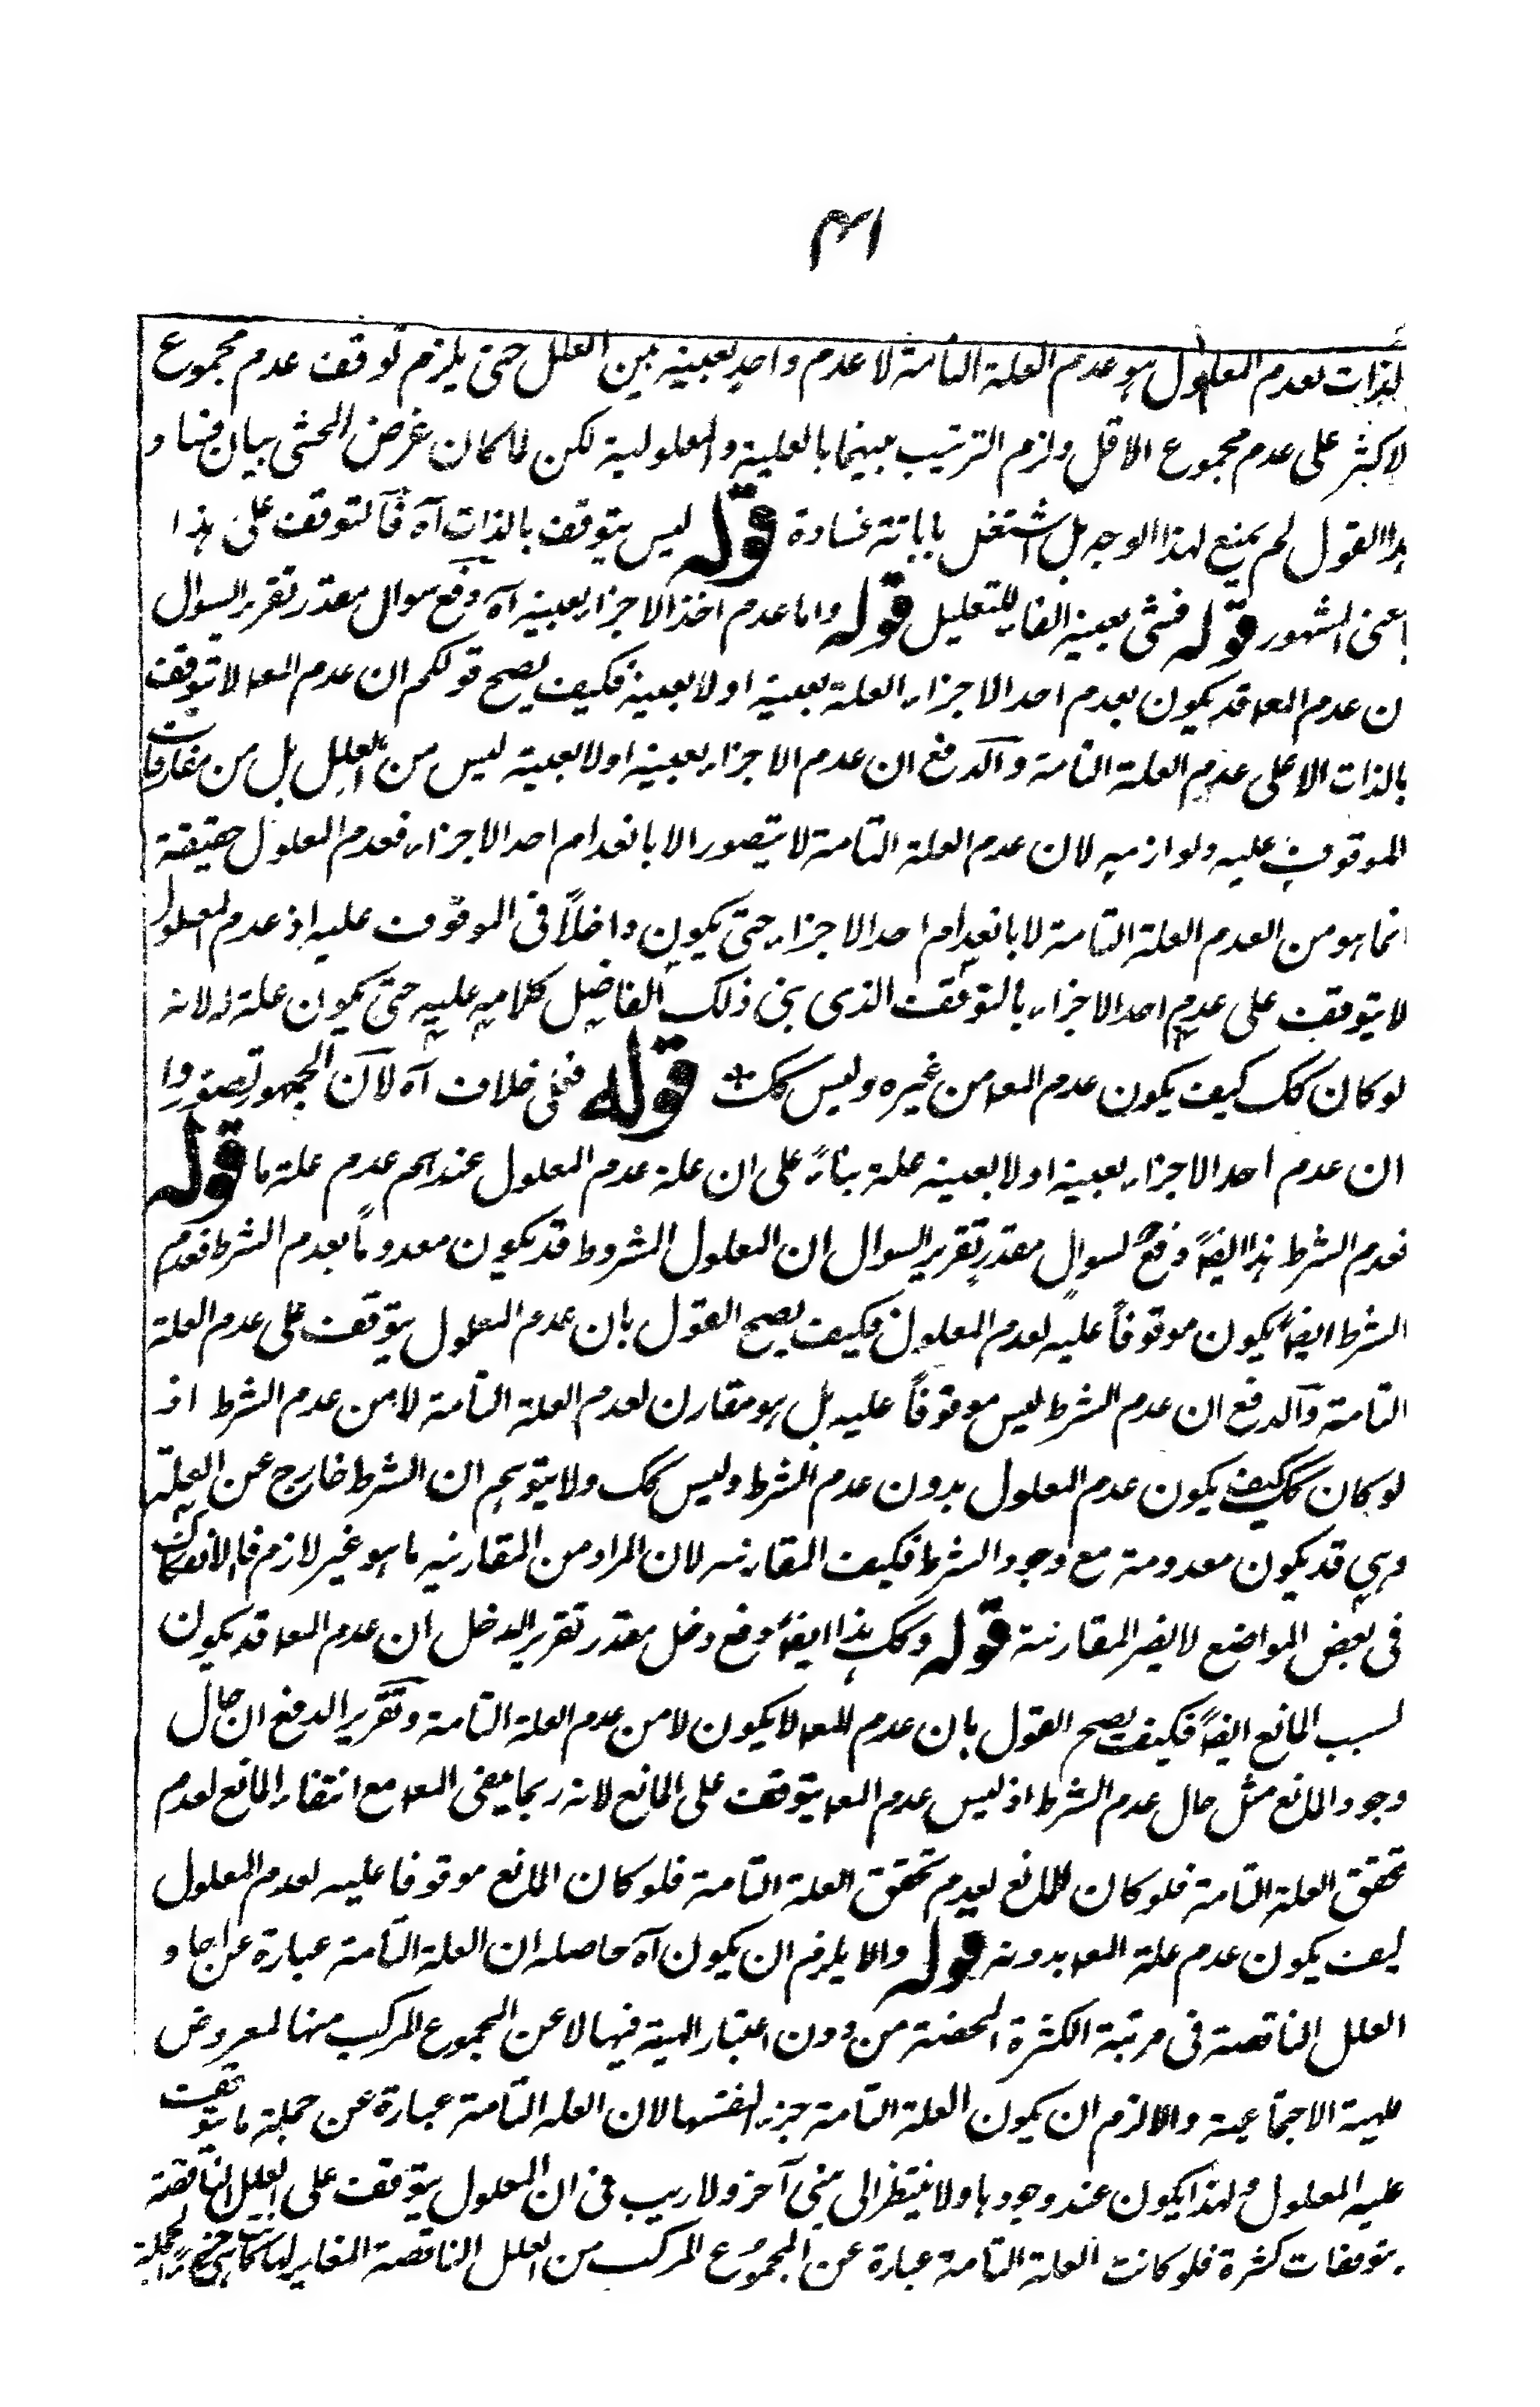 ۴۱
لذات لعدم المعلول ہو عدم العلة التامة لا عدم واحد بعينه بين العلل حتى يلزم توقف عدم مجموع
لاكثر على عدم مجموع الاقل ولزم الترتيب بينهما بالعلية والمعلولية لكن لما كان غرض المحشى بيان فساد
ہذا القول لم يمنع لهذا الوجه بل اشتغل باباتة فسادة قوله ليس يتوقف بالذات آه فالتوقف على ہذا
المعنى المشهور قوله فشى بعينه الفاء للتعليل قوله واما عدم احد الاجزاء بعينه آه دفع سوال مقدر تقرير السوال
ن عدم المعہ قد يكون بعدم احد الاجزاء العلة بعينه او لا بعينه فكيف يصح قولكم ان عدم المعہ لا يتوقف
بالذات الا على عدم العلة التامة والدفع ان عدم الاجزاء بعينه او لا بعينه ليس من العلل بل من مقارنات
الموقوف عليه ولوازمه لان عدم العلة التامة لا يتصور الا بانعدام احد الاجزاء فعدم المعلول حقيقة
انما ہو من العدم العلة التامة لا بانعدام احد الاجزاء حتى يكون داخلاً فى الموقوف عليه اذ عدم المعلول
لا يتوقف على عدم احد الاجزاء بالتوقف الذى بنى ذلك الفاضل كلامه عليه حتى يكون علة له لانه
لو كان كك كيف يكون عدم المعہ من غيره وليس كك قوله فعلى خلاف آه لان الجمهور تصوروا
ان عدم احد الاجزاء بعينه او لا بعينه علة بناءً على ان علة عدم المعلول عندہم عدم علة ما قوله
فعدم الشرط ہذا ايضاً دفع لسوال مقدر تقرير السوال ان المعلول المشروط قد يكون معدوماً بعدم الشرط فعدم
الشرط ايضاً يكون موقوفاً عليه لعدم المعلول فكيف يصح القول بان عدم المعلول يتوقف على عدم العلة
التامة والدفع ان عدم الشرط ليس موقوفاً عليه بل ہو مقارن لعدم العلة التامة لا من عدم الشرط اذ
لو كان كك كيف يكون عدم المعلول بدون عدم الشرط وليس كك ولا يتوہم ان الشرط خارج عن العلة
وہى قد يكون معدومة مع وجود الشرط فكيف المقارنه لان المراد من المقارنيه ما ہو غير لازم فالانفكاك
فى بعض المواضع لا يضر المقارنة قوله وكك ہذا ايضاً دفع دخل مقدر تقرير الدخل ان عدم المعہ قد يكون
لسبب المانع ايضاً فكيف يصح القول بان عدم المعہ لا يكون لا من عدم العلة التامة وتقرير الدفع ان حال
وجود المانع مثل حال عدم الشرط اذ ليس عدم المعہ يتوقف على المانع لانه ربما يبقى المعہ مع انتفاء المانع لعدم
تحقق العلة التامة فلو كان المانع لعدم تحقق العلة التامة فلو كان المانع موقوفا عليه لعدم المعلول
ليف يكون عدم علة المعہ بدونه قوله والا يلزم ان يكون آه حاصله ان العلة التامة عبارة عن احاد
العلل الناقصة فى مرتبة الكثرة المحضة من دون اعتبار الهية فيها لا عن المجموع المركب منها لمعروض
للهية الاجتماعية والا لزم ان يكون العلة التامة جزء لنفسها لان العله التامة عبارة عن جملة ما يتوقف
عليه المعلول ولهذا يكون عند وجودہا ولا ينتظر الى شى آخر ولا ريب فى ان المعلول يتوقف على العلل الناقصة
بتوقفات كثرة فلو كانت العلة التامة عبارة عن المجموع المركب من العلل الناقصة المغاير لها